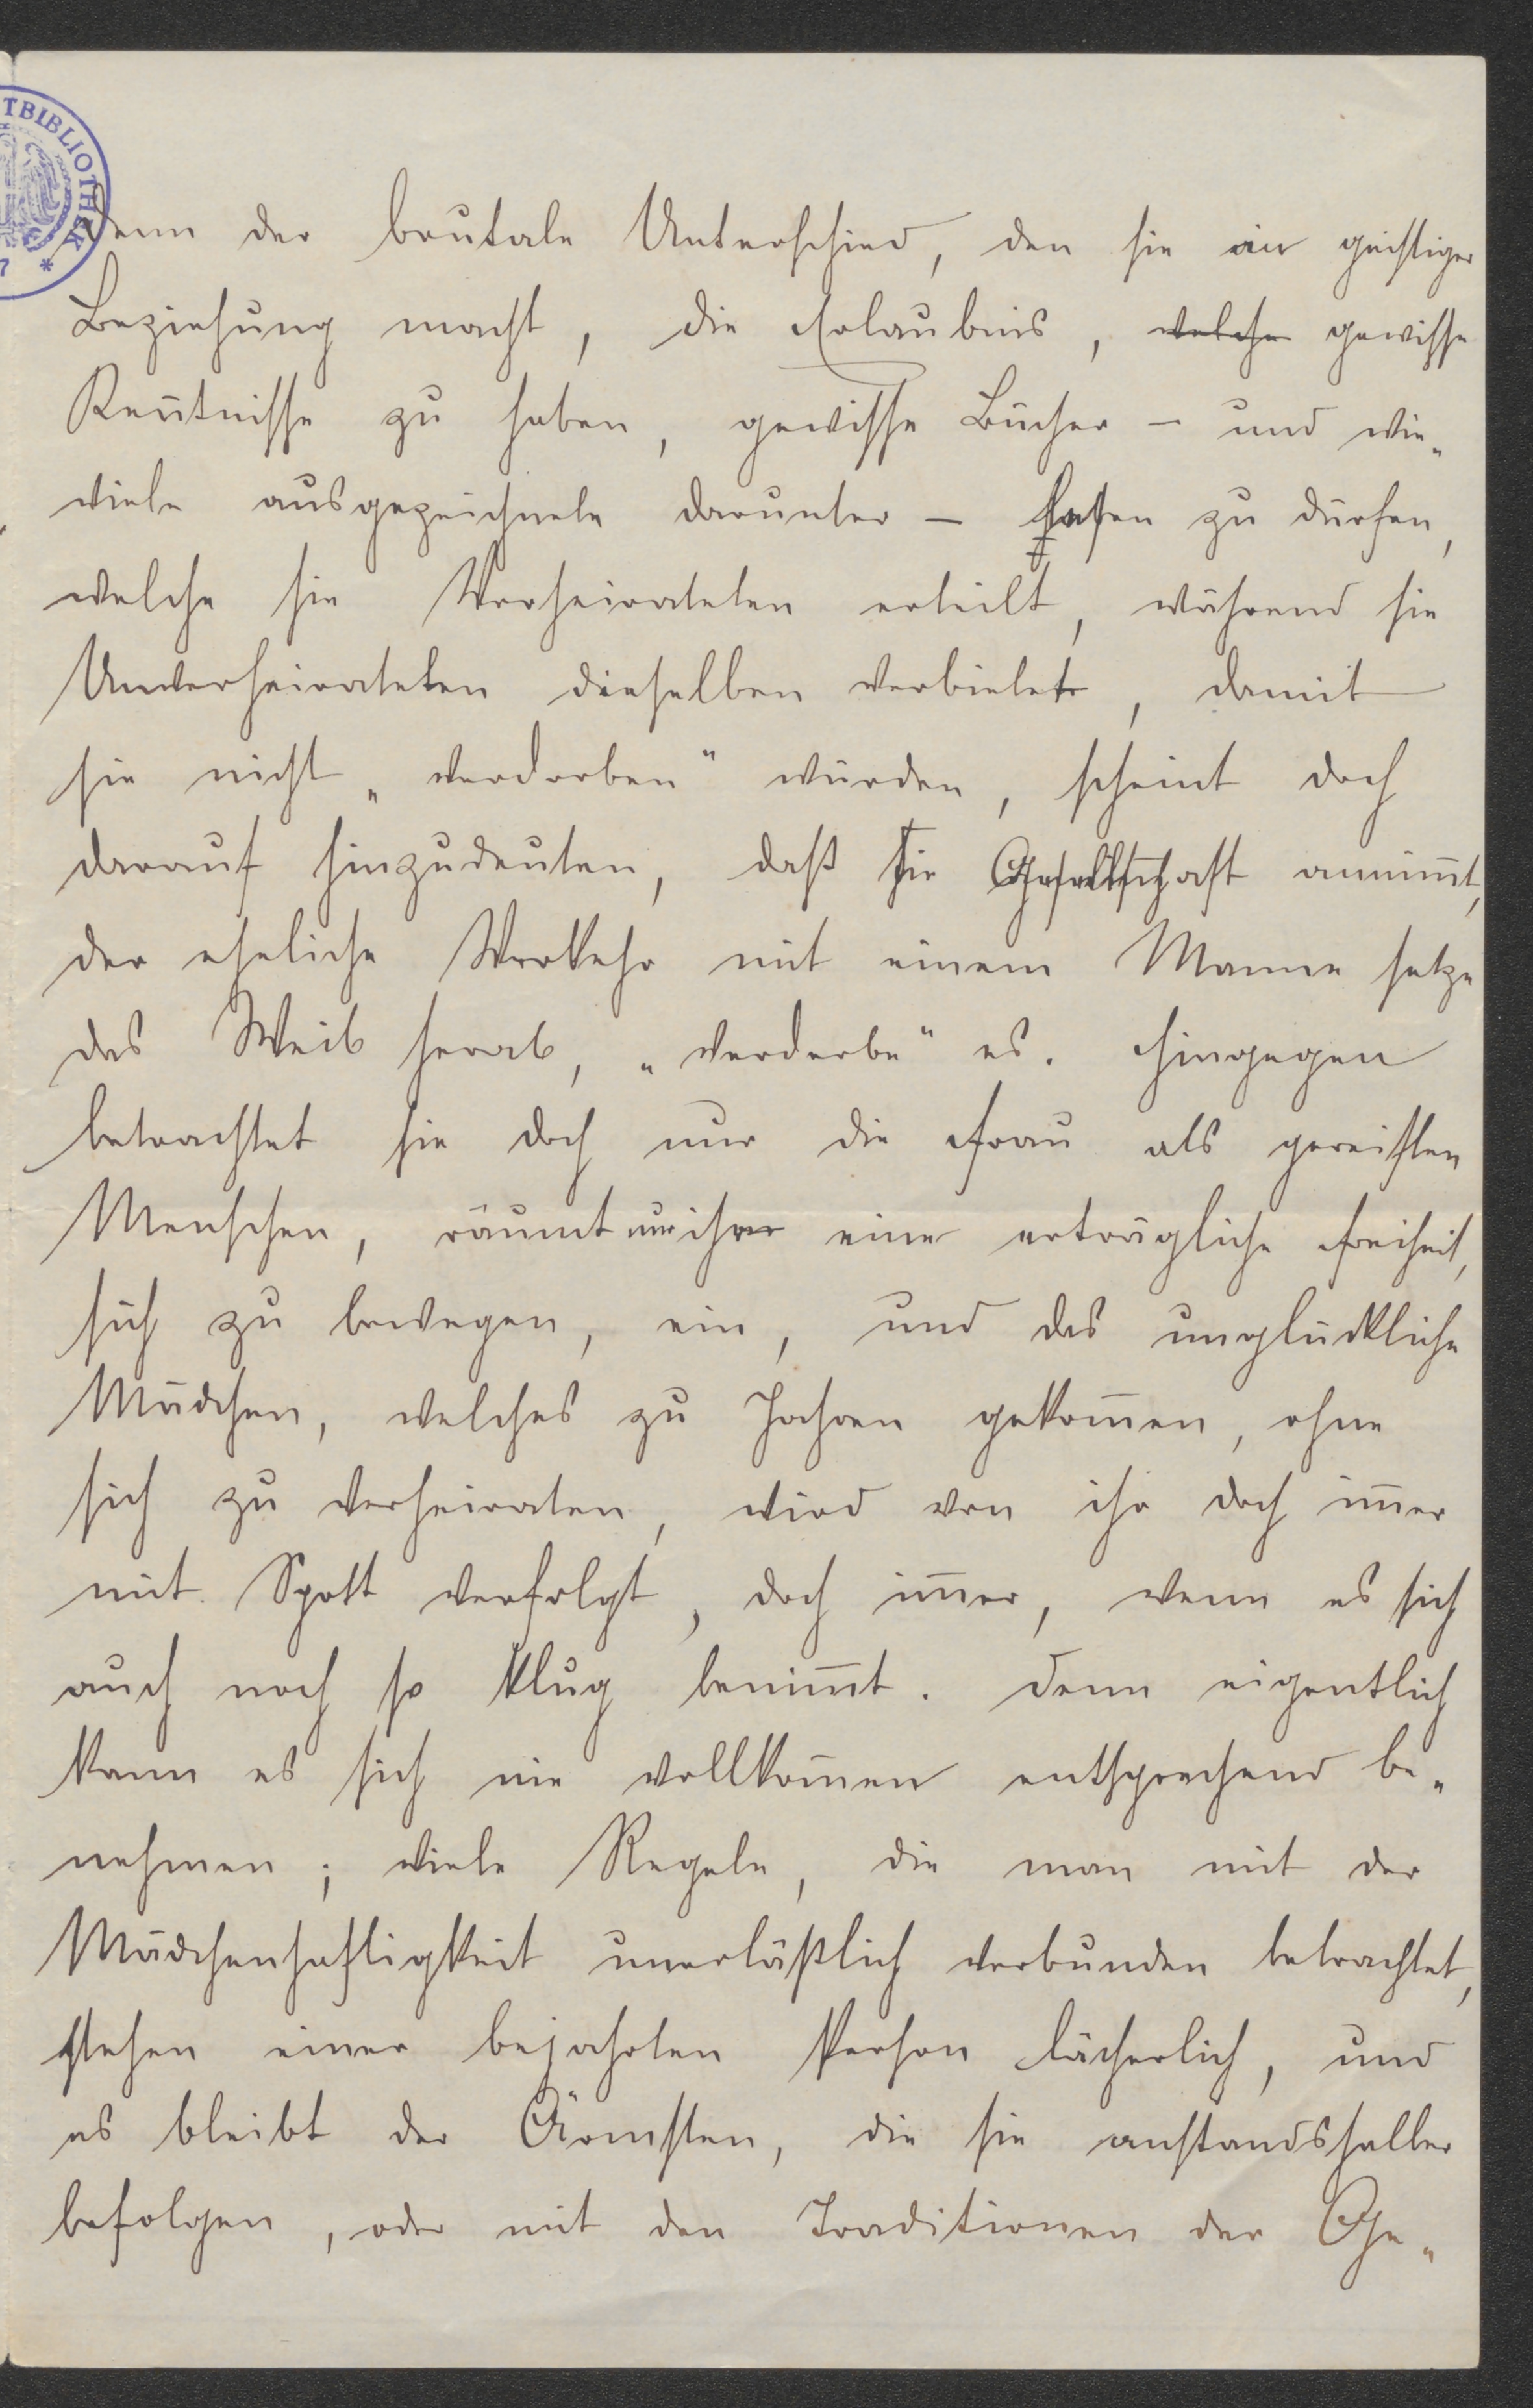 TBIBLIOTHEK
7 *
Denn der brutale Unterschied, den sie in geistiger
Beziehung macht, die Erlaubnis, welche gewisse
Ken̄tnisse zu haben, gewisse Bücher – und wie„
viele ausgezeichnete darunter – lesen zu dürfen,
welche sie Verheirateten erteilt, während sie
Unverheirateten dieselben verbietet, damit
sie nicht „verdorben“ würden, scheint doch
darauf hinzudeuten, daß die Gesellschaft annim̄t,
der eheliche Verkehr mit einem Manne setze
das Weib herab, „verderbe“ es. Hingegen
betrachtet sie doch nur die Frau als gereiften
Menschen, räumt nur ihr eine erträgliche Freiheit,
sich zu bewegen, ein, und das unglückliche
Mädchen, welches zu Jahren gekom̄en, ohne
sich zu verheiraten, wird von ihr doch im̄er
mit Spott verfolgt, doch im̄er, wenn es sich
auch noch so klug benim̄t. Denn eigentlich
kann es sich nie vollkom̄en entsprechend be„
nehmen; viele Regeln, die man mit der
Mädchenhaftigkeit unerläßlich verbunden betrachtet,
stehen einer bejahrten Person lächerlich, und
es bleibt der Ärmsten, die sie anstandshalber
befolgen, oder mit den Traditionen der Ge„